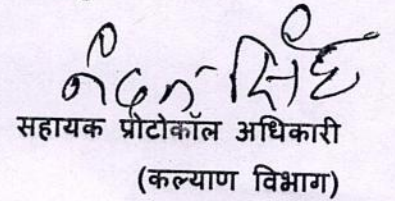 नंदन सिंह
सहायक प्रोटोकॉल अधिकारी
(कल्याण विभाग)